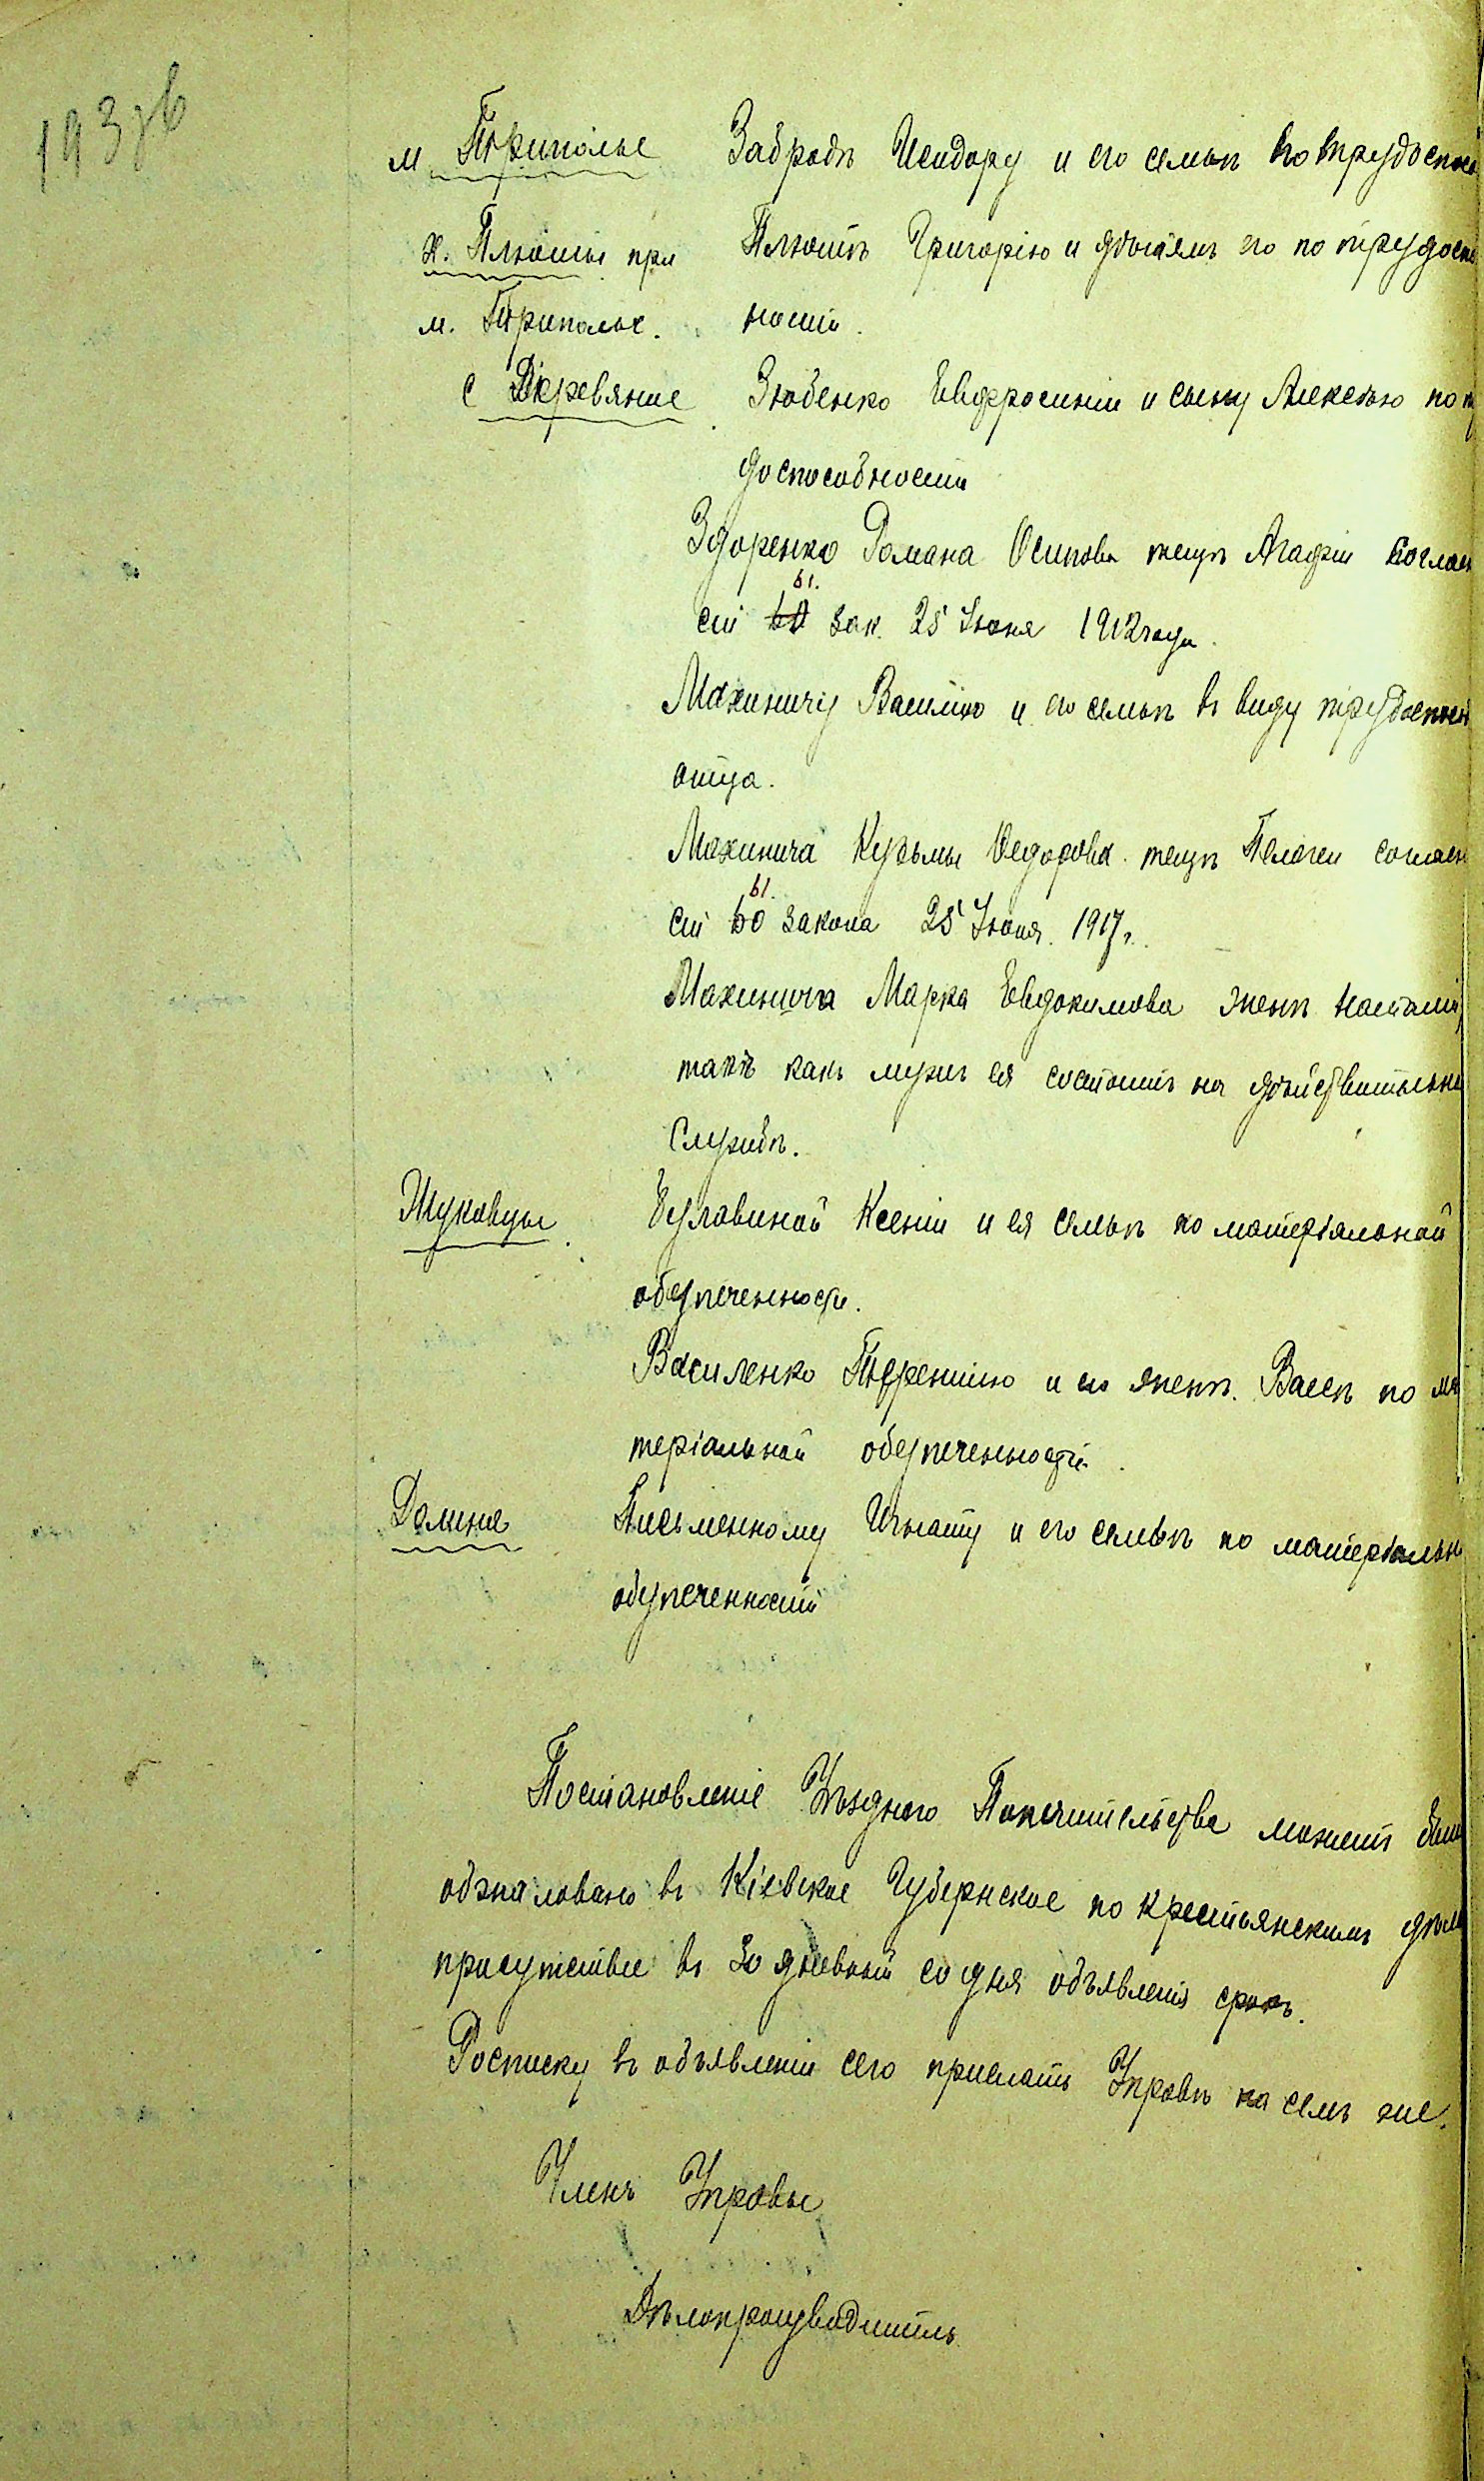 193зв
м Триполье Забродѣ Исидору и его семьѣ по трудоспосо
х. Плюты при Плютѣ Григорію и дѣтямъ его по трудоспо
м. Триполье. ности.
с Деревяние Зюбенко Евфросиніи и сыну Алексѣю по т
доспособности
Здоренко Романа Осипова тещѣ Агафіи соглас
61.
ст 60 зак. 25 Іюня 1912 года.
Махиничу Василію и его семьѣ въ виду трудоспосо
отца.
Махинича Кузьмы Федорова тещѣ Пелагеи согласн
61.
ст 60 закона 25 Іюня. 1917 г.
Махинича Марка Евдокимова женѣ Наталіи,
такъ какъ мужъ ея состоитъ на дѣйствительно
службѣ.
Жуковцы Ксеніи и ея семьѣ по матеріяльной
обезпеченности.
Василенко и его женѣ. Васеѣ по ма
теріальной обезпеченности.
Долина Письменному Игнату и его семьѣ по матеріальн
обезпеченности
Постановленіе Уѣзднаго Попечительства можетъ быть
обжаловано въ Кіевское Губернское по крестьянскимъ дѣла
присутствіе въ 30 дневный со дня объявленія срокъ.
Росписку въ объявленіи сего прислать Управѣ на семъ же.
Членъ Управы
Дѣлопроизводитель